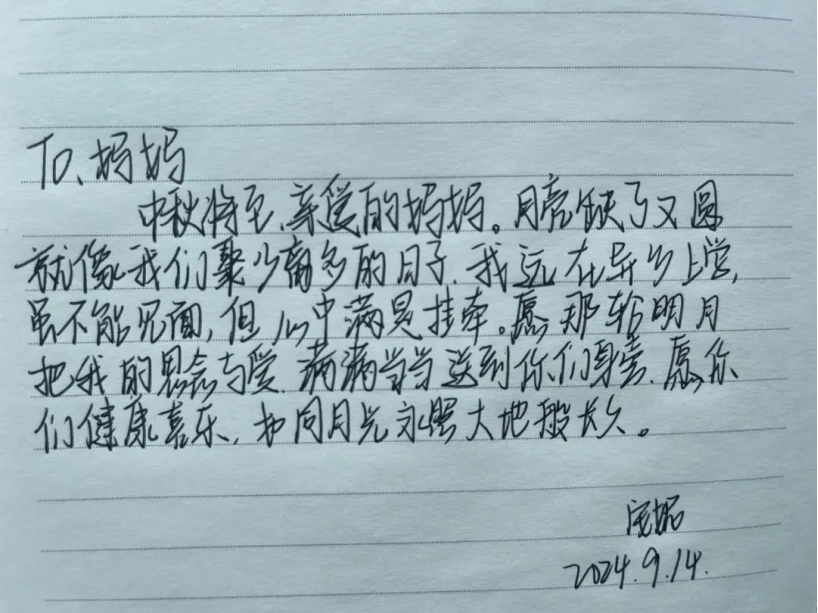 To、妈妈
中秋将至，亲爱的妈妈。月亮缺了又圆
就像我们聚少离多的日子，我远在异乡上学，
虽不能见面，但心中满是挂牵。愿那轮明月
把我的思念与爱，满满当当送到你们身旁，愿你
们健康喜乐，如同月光永照大地般长久。
2024.9.14.